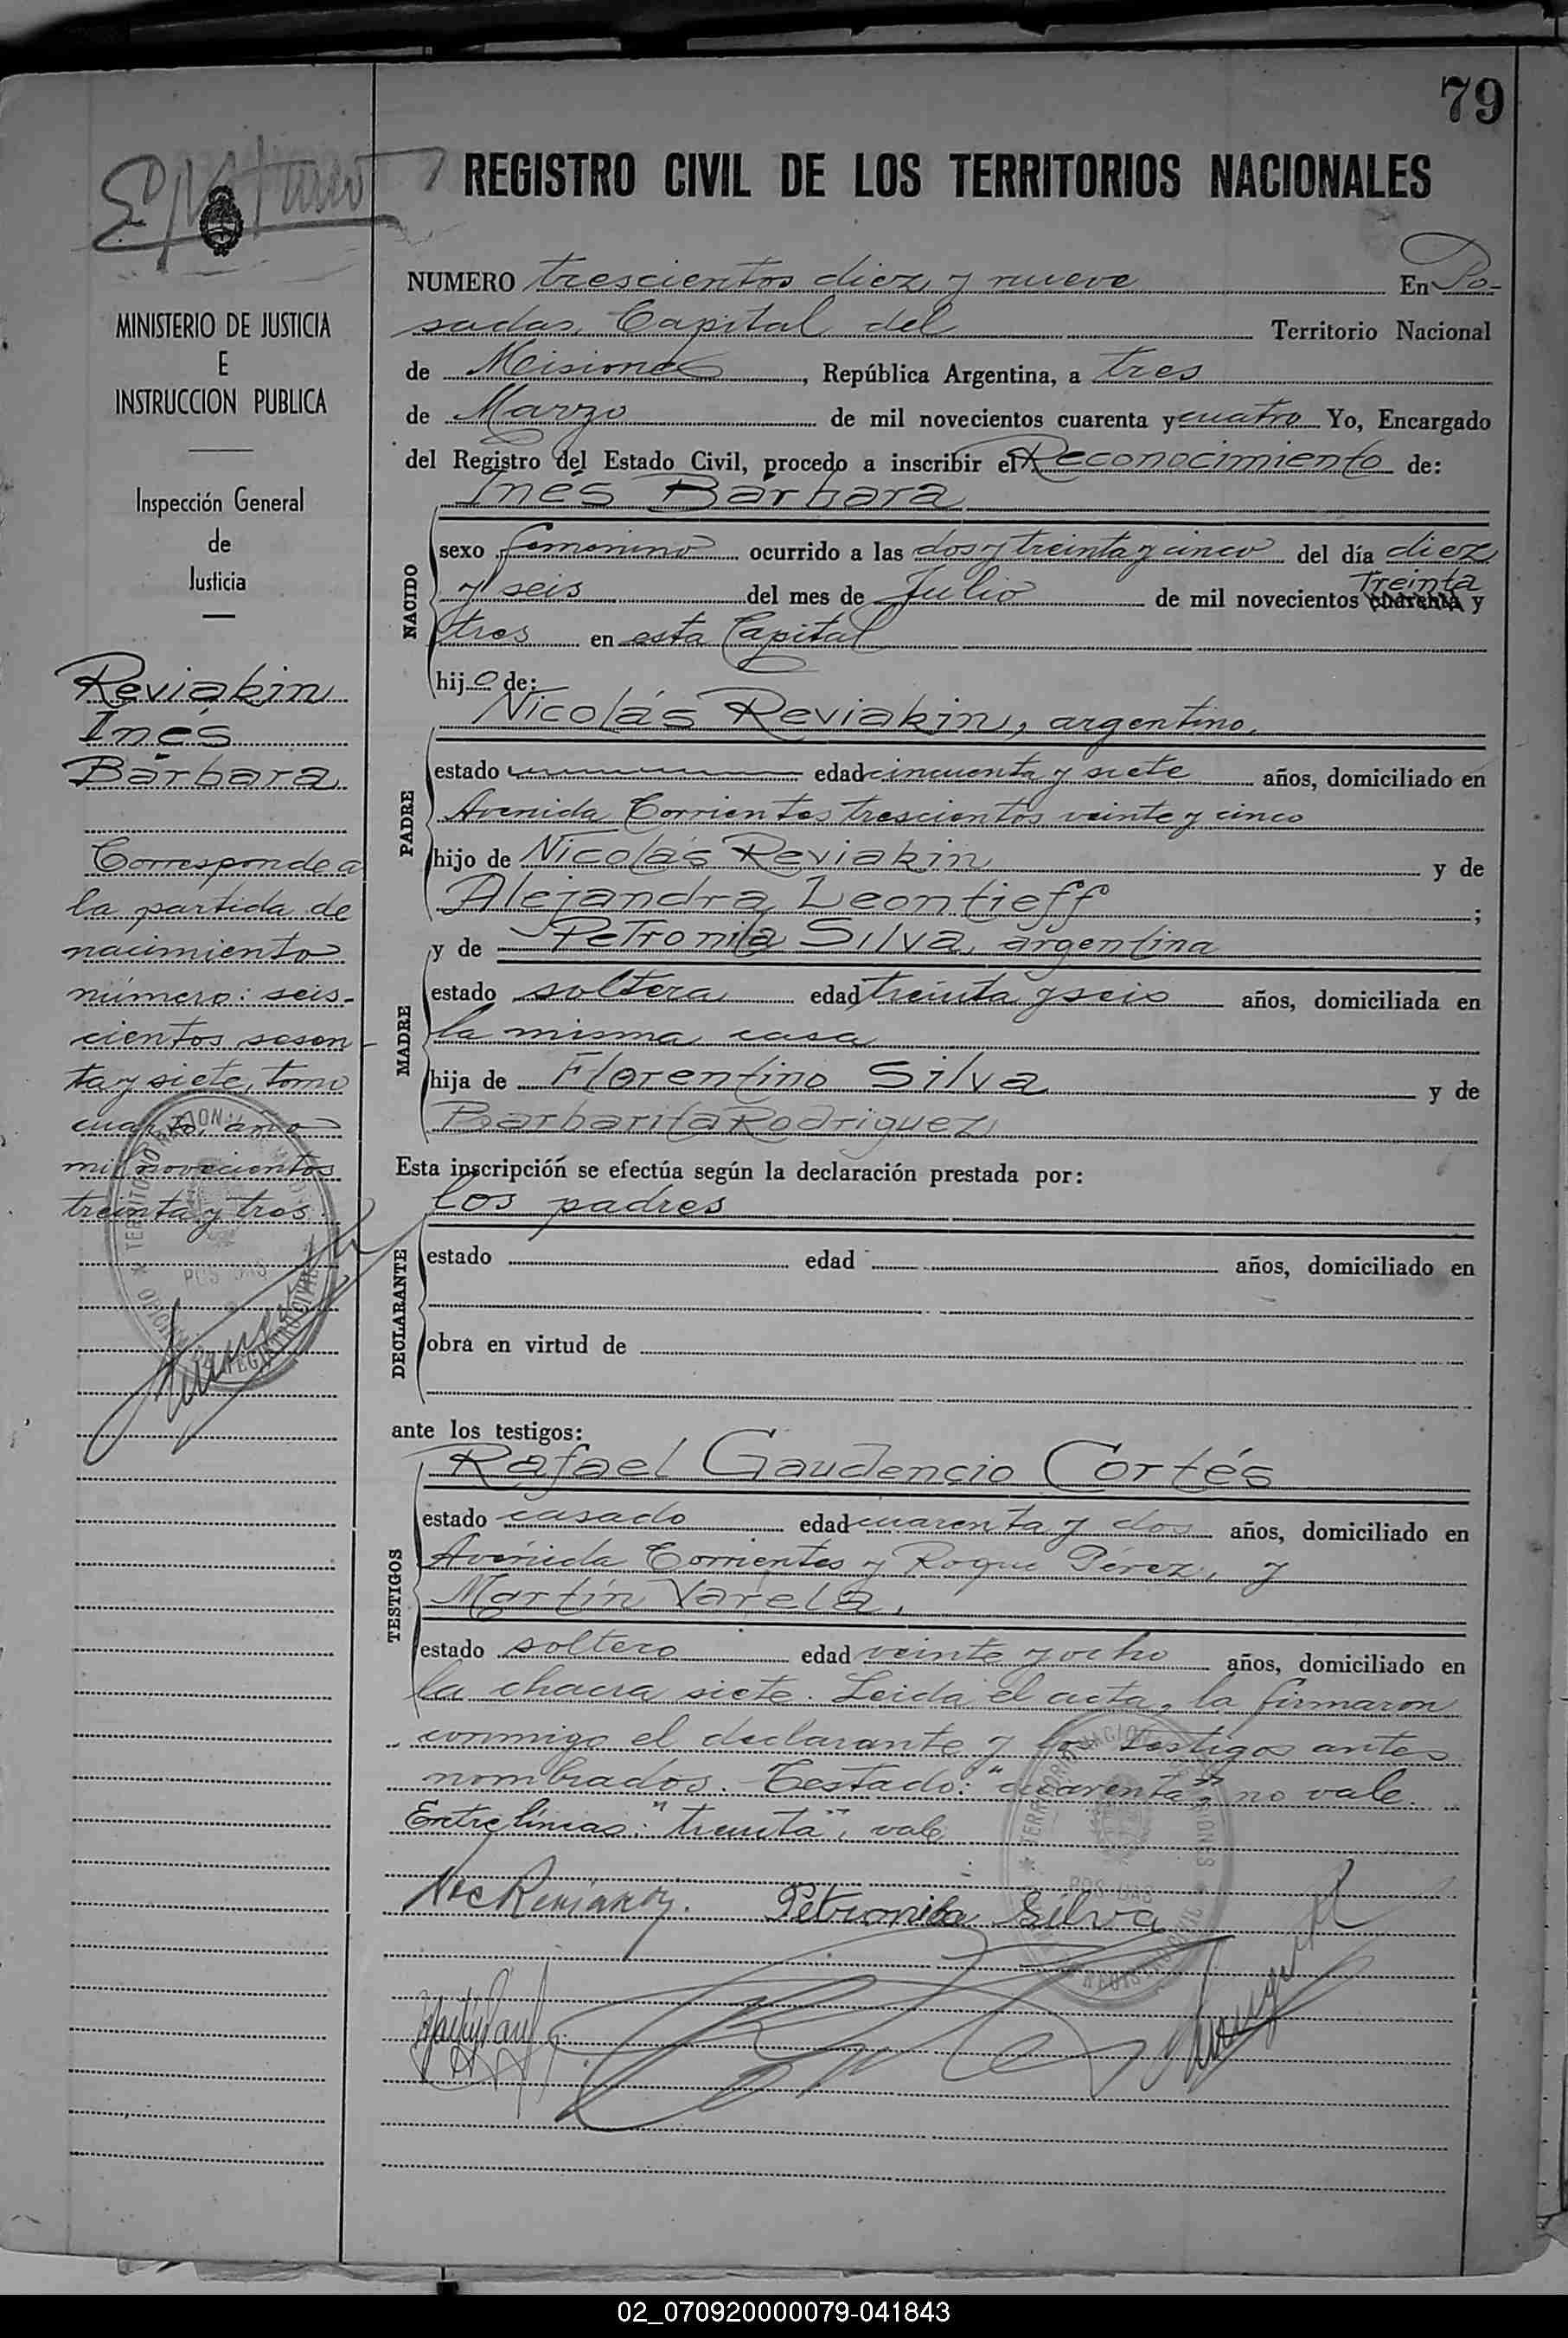 79
REGISTRO CIVIL DE LOS TERRITORIOS NACIONALES
MINISTERIO DE JUSTICIA
E
INSTRUCCION PUBLICA
Inspección General
de
Justicia
Reviakin
Inés
Bárbara
Corresponde a
la partida de
nacimiento
número: seis-
cientos sesen-
ta y siete, tomo
cuarto, año
mil novecientos
treinta y tres.
NUMERO trescientos diez y nueve En Po-
sadas, Capital del Territorio Nacional
de Misiones, República Argentina, a tres
de Marzo de mil novecientos cuarenta y cuatro Yo, Encargado
del Registro del Estado Civil, procedo a inscribir el Reconocimiento de:
Inés Bárbara
NACIDO
sexo femenino ocurrido a las dos y treinta y cinco del día diez
y seis del mes de Julio de mil novecientos cuarenta treinta y
tres en esta Capital
hijo de:
Nicolás Reviakin, argentino.
PADRE
estado edad cincuenta y siete años, domiciliado en
Avenida Corrientes trescientos veinte y cinco
hijo de Nicolás Reviakin y de
Alejandra Leontieff ;
y de Petronila Silva, argentina
MADRE
estado soltera edad treinta y seis años, domiciliada en
la misma casa
hija de Florentino Silva y de
Barbarita Rodriguez
Esta inscripción se efectúa según la declaración prestada por:
los padres
DECLARANTE
estado edad años, domiciliado en
obra en virtud de
ante los testigos:
Rafael Gaudencio Cortés
TESTIGOS
estado casado edad cuarenta y dos años, domiciliado en
Avenida Corrientes y Roque Pérez, y
Martín Varela,
estado soltero edad veinte y ocho años, domiciliado en
la chacra siete. Leida el acta, la firmaron
conmigo el declarante y los testigos antes
nombrados. Testado: "cuarenta", no vale.
Entre líneas: "treinta", vale
Petronila Silva
02_070920000079-041843